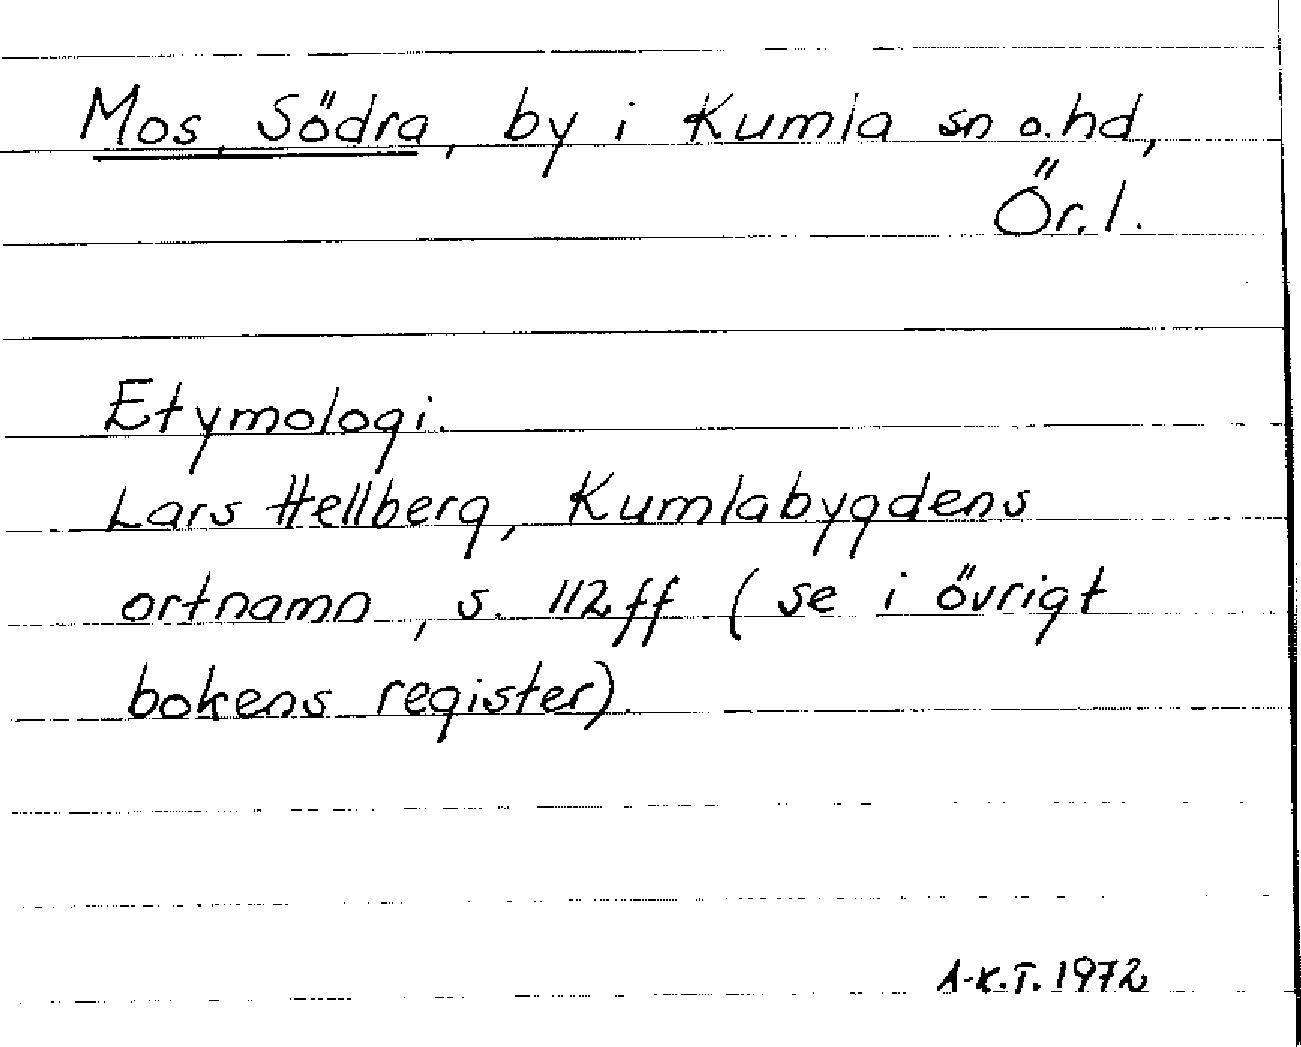 Mos, Södra, by i Kumla sn o. hd,
Ör. l.
Etymologi.
Lars Hellberg, Kumlabygdens
ortnamn, s. 112 ff (se i övrigt
bokens register).
A-K.T. 1972